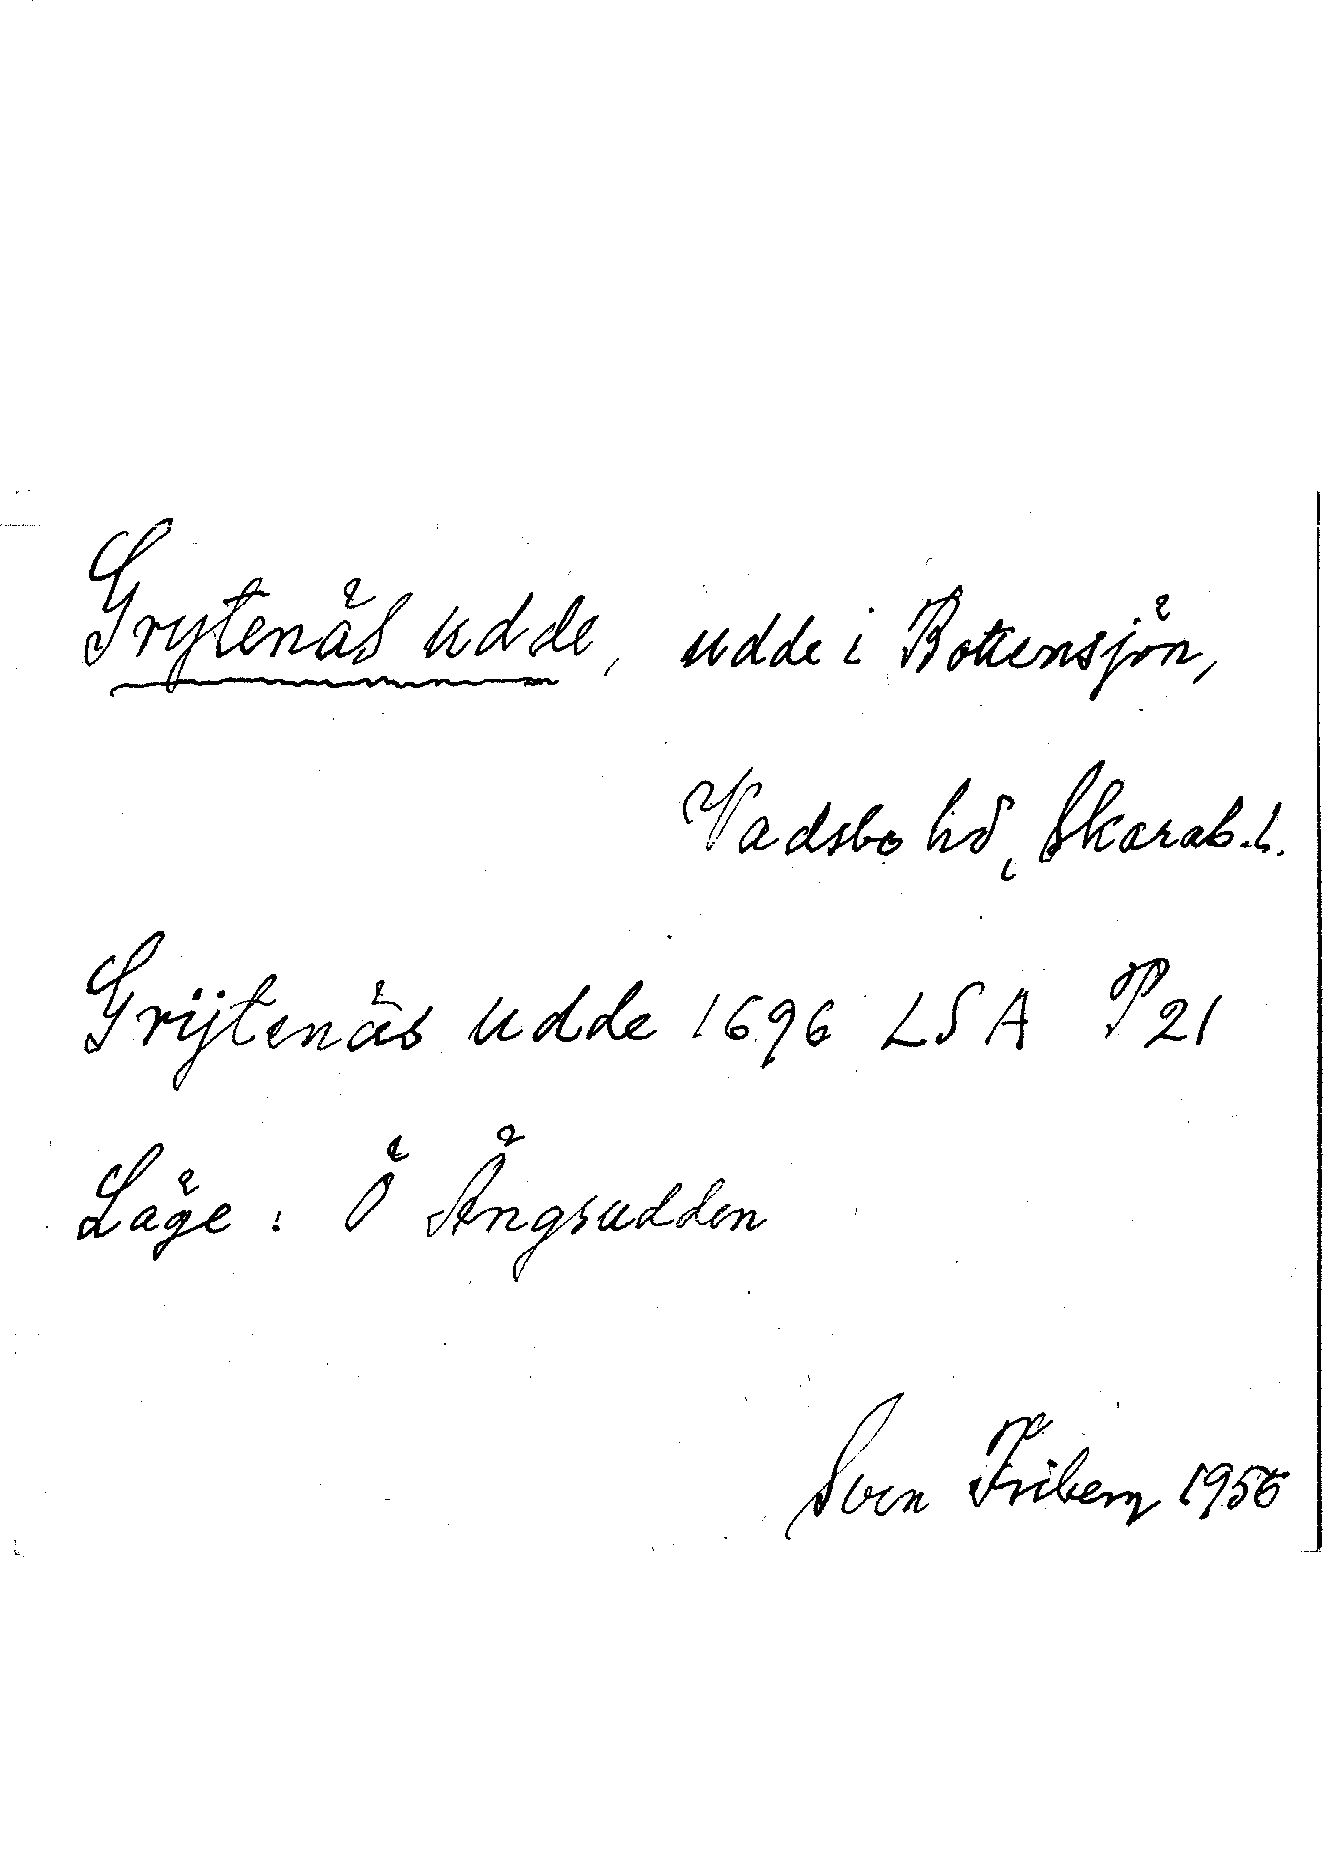 Grytenäs udde, udde i Bottensjön,
Vadsbo hd, Skarab. l.
Grÿtenäs udde 1696 LSA P21
Läge: Ö Ängsudden
Sven Friberg 1956